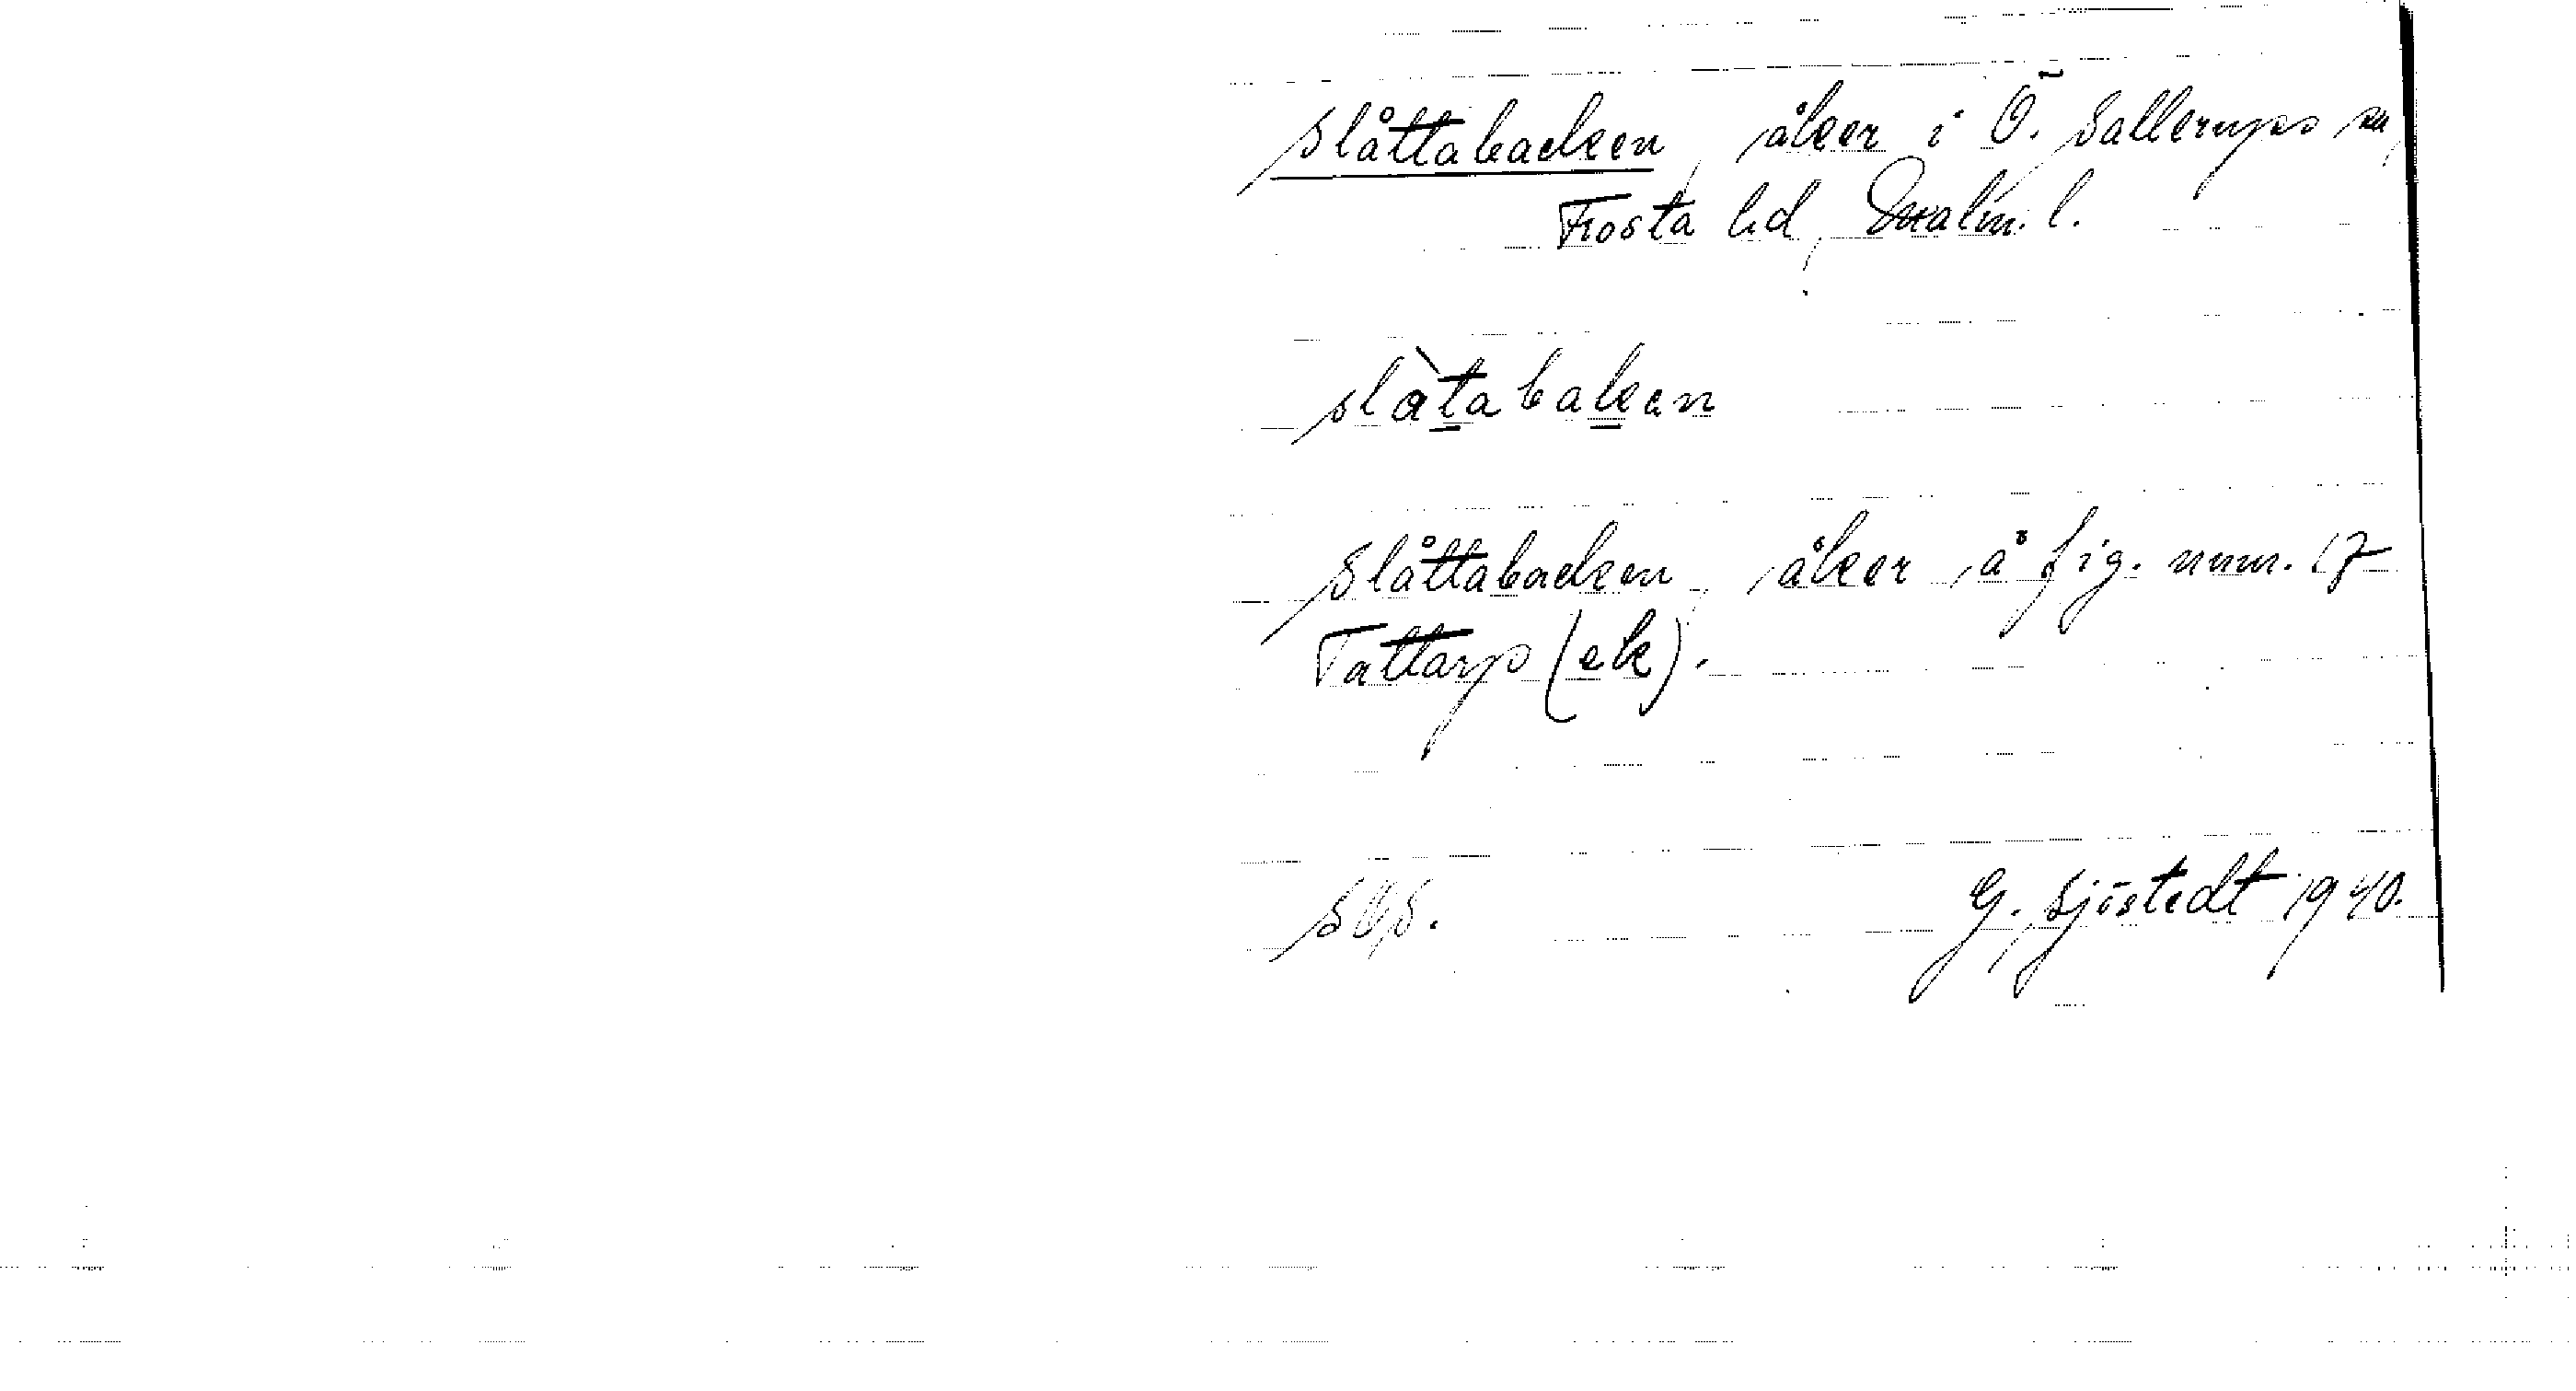 Slåttabacken, åker i Ö. Sallerups sn,
Frosta hd, Malm. l.
slàtabakan
Slåttabacken, åker å fig. num. 17
Tattarp (ek).
G. Sjöstedt 1940.